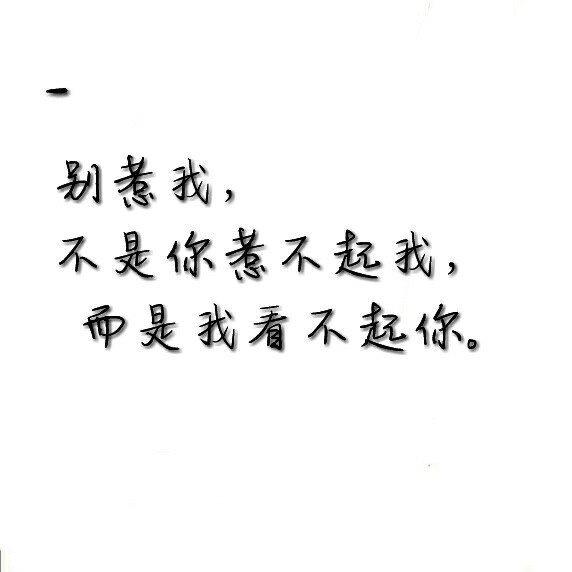 一
别惹我，
不是你惹不起我，
而是我看不起你。